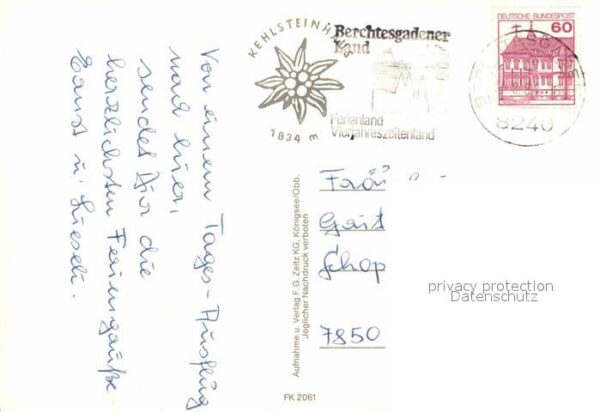 Von einem Tages-Ausflug
nach hier,
sendet Dir die
herzlichsten Feriengrüße
u. Liesel.
KEHLSTEINHAUS
1834 m
Berchtesgadener
Land
Ferienland
Vierjahreszeitenland
DEUTSCHE BUNDESPOST
60
8240
Aufnahme u. Verlag F. G. Zeitz KG, Königsee/Obb.
Jeglicher Nachdruck verboten
FK 2061
Chop
7850
privacy protection
Datenschutz